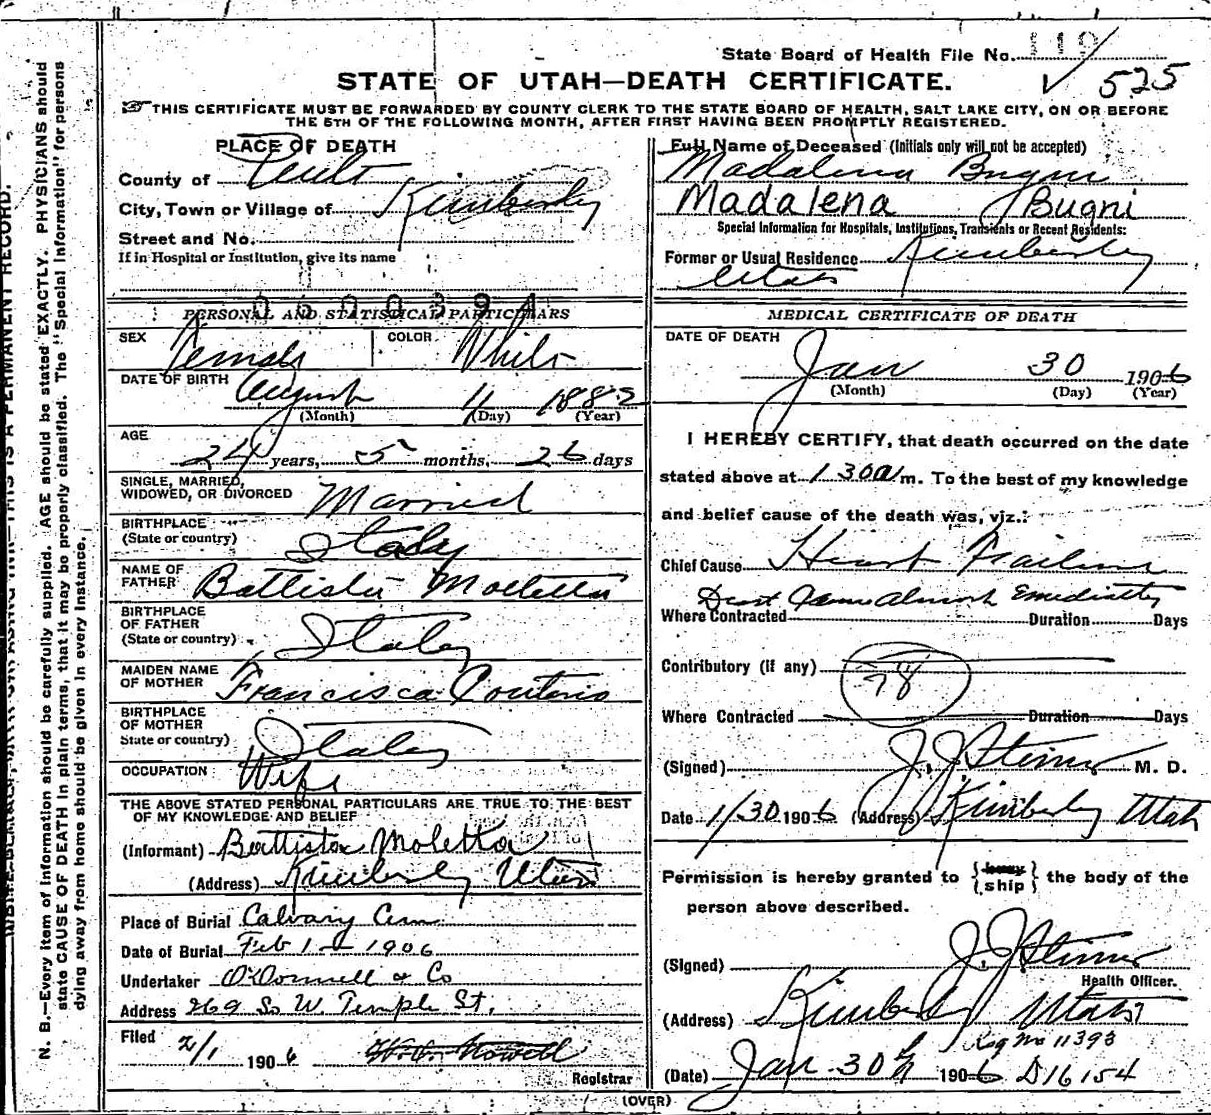 State Board of Health File No. 119
STATE OF UTAH—DEATH CERTIFICATE.
✓ 525
THIS CERTIFICATE MUST BE FORWARDED BY COUNTY CLERK TO THE STATE BOARD OF HEALTH, SALT LAKE CITY, ON OR BEFORE
THE 5TH OF THE FOLLOWING MONTH, AFTER FIRST HAVING BEEN PROMPTLY REGISTERED.
PLACE OF DEATH
County of
City, Town or Village of Kimberly
Street and No.
If in Hospital or Institution, give its name
Full Name of Deceased (Initials only will not be accepted)
Madalena Bugni
Madalena Bugni
Special Information for Hospitals, Institutions, Transients or Recent Residents:
Former or Usual Residence Kimberly
Utah
PERSONAL AND STATISTICAL PARTICULARS
SEX Female COLOR White
DATE OF BIRTH August 11 1882
(Month) (Day) (Year)
AGE
24 years, 5 months, 26 days
SINGLE, MARRIED,
WIDOWED, OR DIVORCED Married
BIRTHPLACE
(State or country) Italy
NAME OF
FATHER Battista Moletta
BIRTHPLACE
OF FATHER
(State or country) Italy
MAIDEN NAME
OF MOTHER Francisca
BIRTHPLACE
OF MOTHER
State or country) Italy
OCCUPATION Wife
THE ABOVE STATED PERSONAL PARTICULARS ARE TRUE TO THE BEST
OF MY KNOWLEDGE AND BELIEF
(Informant) Battista Moletta
(Address) Kimberly Utah
Place of Burial Calvary Cem
Date of Burial Feb 1 1906
Undertaker O'Donnell & Co
Address 269 So W. Temple St.
Filed 2/1 1906
Registrar
MEDICAL CERTIFICATE OF DEATH
DATE OF DEATH
Jan 30 1906
(Month) (Day) (Year)
I HEREBY CERTIFY, that death occurred on the date
stated above at 1 30 a m. To the best of my knowledge
and belief cause of the death was, viz.:
Chief Cause Heart Failure
Death Came Almost Emediatly
Where Contracted Duration Days
Contributory (if any)
78
Where Contracted Duration Days
(Signed) J. J. Steiner M. D.
Date 1/30 1906 (Address) Kimberly Utah
Permission is hereby granted to {bury
{ship} the body of the
person above described.
(Signed) J. J. Steiner
Health Officer.
(Address) Kimberly Utah
Reg No 11393
(Date) Jan 30 1906 D16154
(OVER)
N. B.—Every item of information should be carefully supplied. AGE should be stated EXACTLY. PHYSICIANS should
state CAUSE OF DEATH in plain terms, that it may be properly classified. The "Special Information" for persons
dying away from home should be given in every instance.
THIS IS A PERMANENT RECORD.